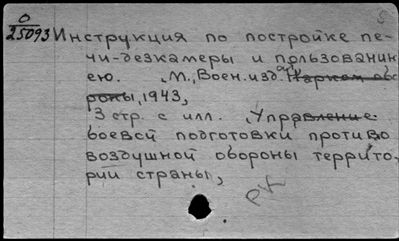 О
25093
Инструкция по постройке пе-
чи-дезкамеры и пользованию
ею. М., Воен. изд-во, Нарком. обо
роны, 1943,
3 стр. с илл. Управление
боевой подготовки противо
воздушной обороны террито-
рии страны,